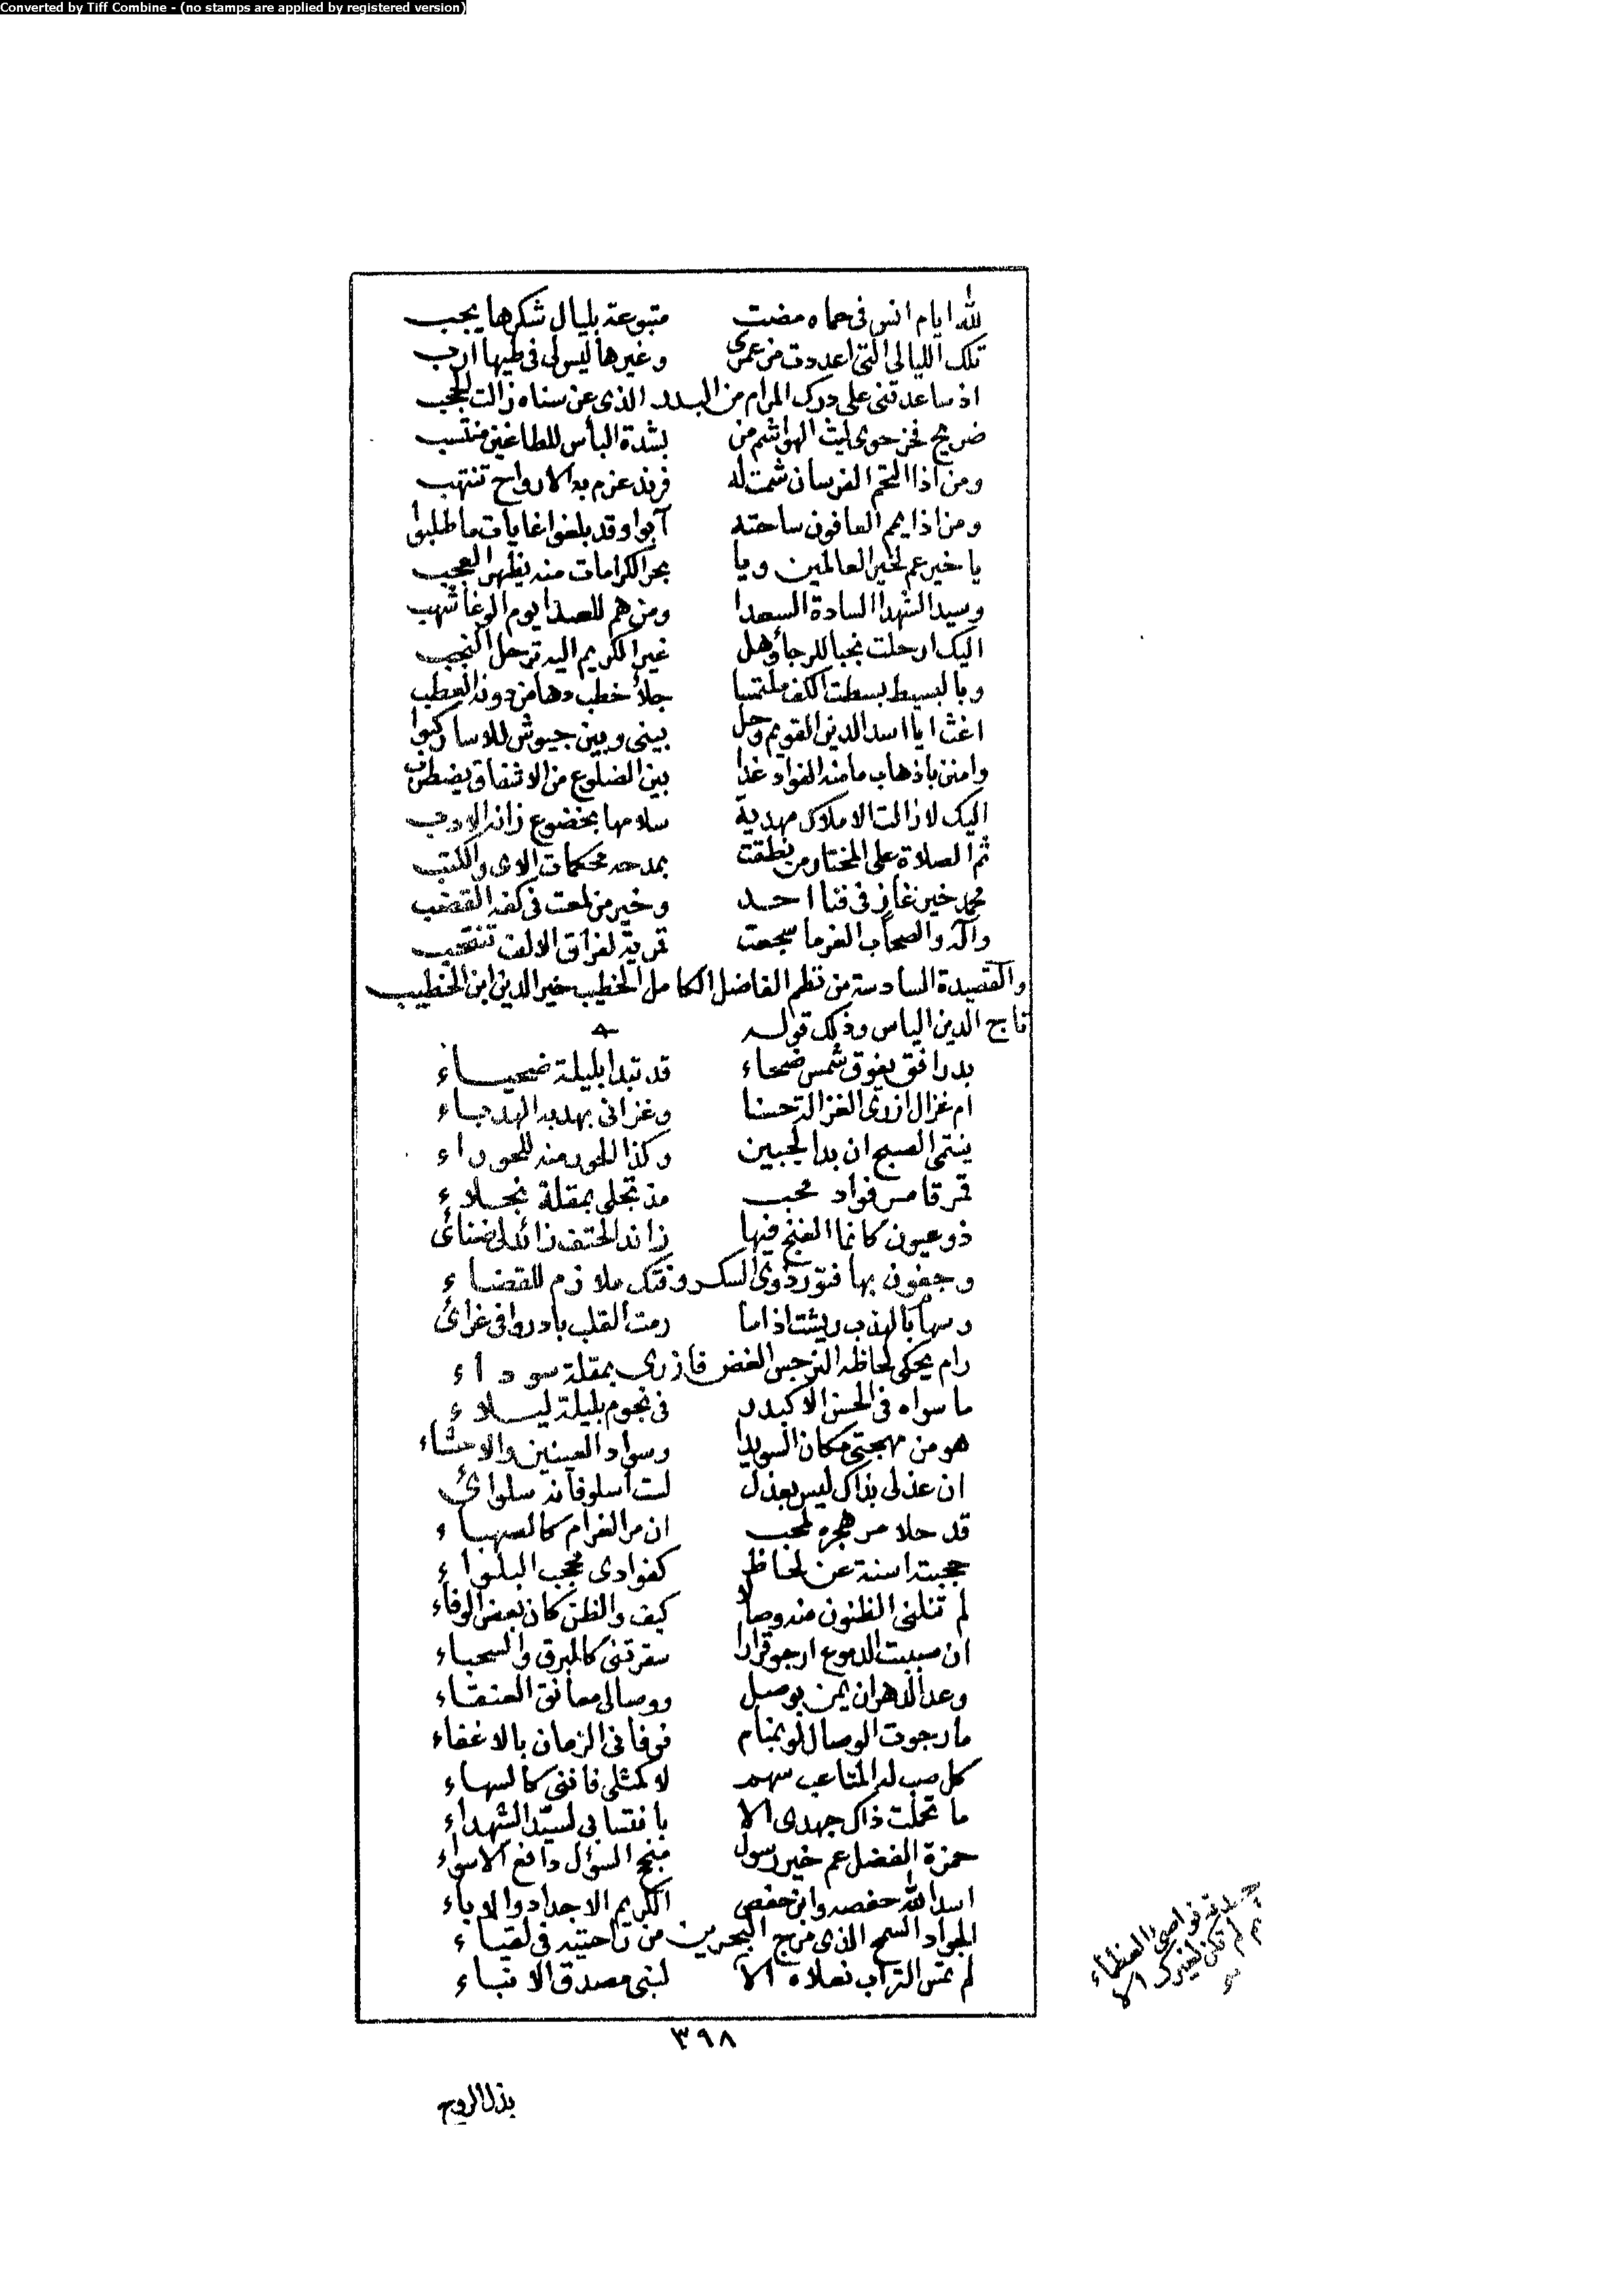 Converted by Tiff Combine - (no stamps are applied by registered version)
لله ايام انس فى حماه مضت متبوعة بليال شكرها يجب
تلك الليالى التى اعددت من عمرى وغيرها ليس لى فى طيها ارب
اذ ساعدتنى على درك المرام من البدر الذى عن سناه زالت الحجب
ضريح فخر حوى ليث الهواشم من بشدة البأس للطاغين منتسب
ومن اذا التحم الفرسان شمت له فرند عزم به الارواح تنتهب
ومن اذا يمم العافون ساحته آبوا وقد بلغوا غايات ما طلبوا
يا خير عم لخير العالمين ويا بحر الكرامات منه يظهر العجب
وسيد الشهدا السادة السعدا ومن هم للعدا يوم الوغا شهب
اليك ارحلت نجبا للرجاء وهل غير الكريم اليه ترحل النجب
وبالبسيط بسطت الكف ملتمسا جلاء خطب دها من دونه العطب
اغث ايا اسد الدين القويم وحل بينى وبين جيوش للاسا ركبوا
وامنن باذهاب ما منه الفواد غدا بين الضلوع من الاشفاق يضطرب
اليك لا زالت الاملاك مهدية سلامها بخضوع زانه الادب
ثم الصلاة على المختار من نطقت بمدحه محكمات الاى والكتب
محمد خير غاز فى فنا احد وخير من لمعت فى كفه القضب
وآله والصحاب الغر ما سجعت قمرية لفراق الالف تنتحب
والقصيدة السادسة من نظم الفاضل الكامل الخطيب خير الدين ابن الخطيب
تاج الدين الياس وذلك قوله
بدر افق يفوق شمس ضحاء قد تبدا بليلة ضحياء
ام غزال ازرى الغزالة حسنا وغزانى بهدبه الهدباء
ينتمى الصبح ان بدا لجبين وكذا الحور منه للحوراء
قمر قامر فواد محب مذ تجلى بمقلة نجلاء
ذو عيون كانما الغنج فيها زاند الحتف زائد لى ضنائى
وجفون بها فتور ذوى السكر وفتك ملازم للقضاء
وسهام بالهدب ريشت اذا ما رمت القلب بادروا فى غرائى
رام يحكى لحاظه النرجس الغض فازرى بمقلة سوداء
ما سواه فى الحسن الا كبدر فى نجوم بليلة ليلاء
هو من مهجتى مكان السويدا وسواد العينين والاحشاء
ان عذلى بذاك ليس بعذل لست اسلو فانه سلوائى
قد حلا مر هجره لمحب ان مر الغرام كالصهباء
حجبته اسنة عن لحاظى كفوادى محجب البلواء
لم تنلنى الظنون منه وصالا كيف والظن كان بعض الوفاء
ان صببت الدموع ارجو قرارا سقرتنى كالبرق والسحباء
وعد الدهر ان يمن بوصل ووصالى معانق العنقاء
ما رجوت الوصال لو بمنام فوفا فى الزمان بالاغفاء
كل صب له المتاعب سهم لا كمثلى فاننى كالسهاء
ما تحملت ذاك جهدى الا بانتسابى لسيد الشهداء
حمزة الفضل عم خير رسول منجح السؤال دافع الاسواء
اسد الله حفصه وابن حفص الكريم الاجداد والاباء
الجواد السمح الذى مرج البحرين من راحتيه فى لقياء
لم تمس التراب نعلاه الا لبنى مصدق الانباء
نواصى العظماء
لم تكن لغيرك الا
٣٩٨
بذل الروح